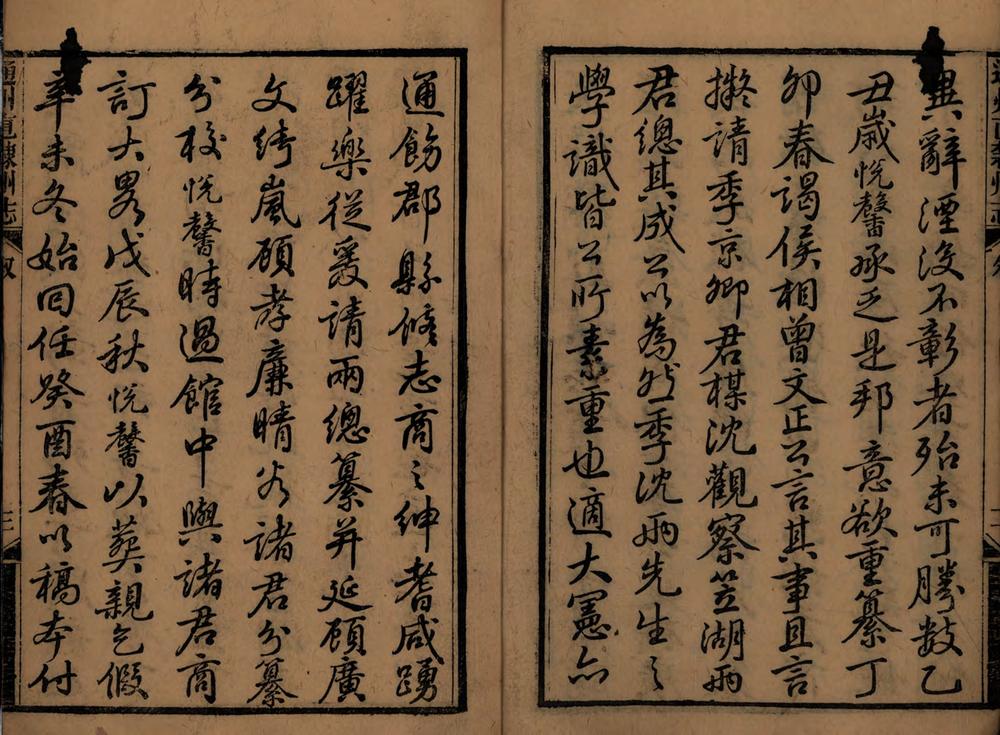 異辭湮沒不彰者殆未可勝数乙
丑歲悦馨承乏是邦意欲重纂丁
卯春謁侯相曾文正公言其事且言
擬請季京卿君楳沈觀察笠湖兩
君總其成公以為然季沈兩先生之
學識皆公所素重也適大憲亦
通飭郡縣修志商之紳耆咸踴
躍樂從爰請兩總纂并延顧廣
文縍嵐顧孝廉晴谷諸君分纂
分校悦馨時過館中與諸君商
訂大畧戊辰秋悦馨以葬親乞假
辛未冬始回任癸酉春以稿本付
通州直隸州志
叙
三